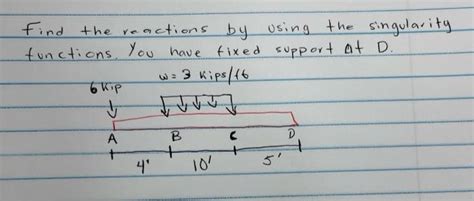 Find the reactions by using the singularity
functions. You have fixed support At D.
w = 3 kips/ft
6 kip
A B C D
4' 10' 5'